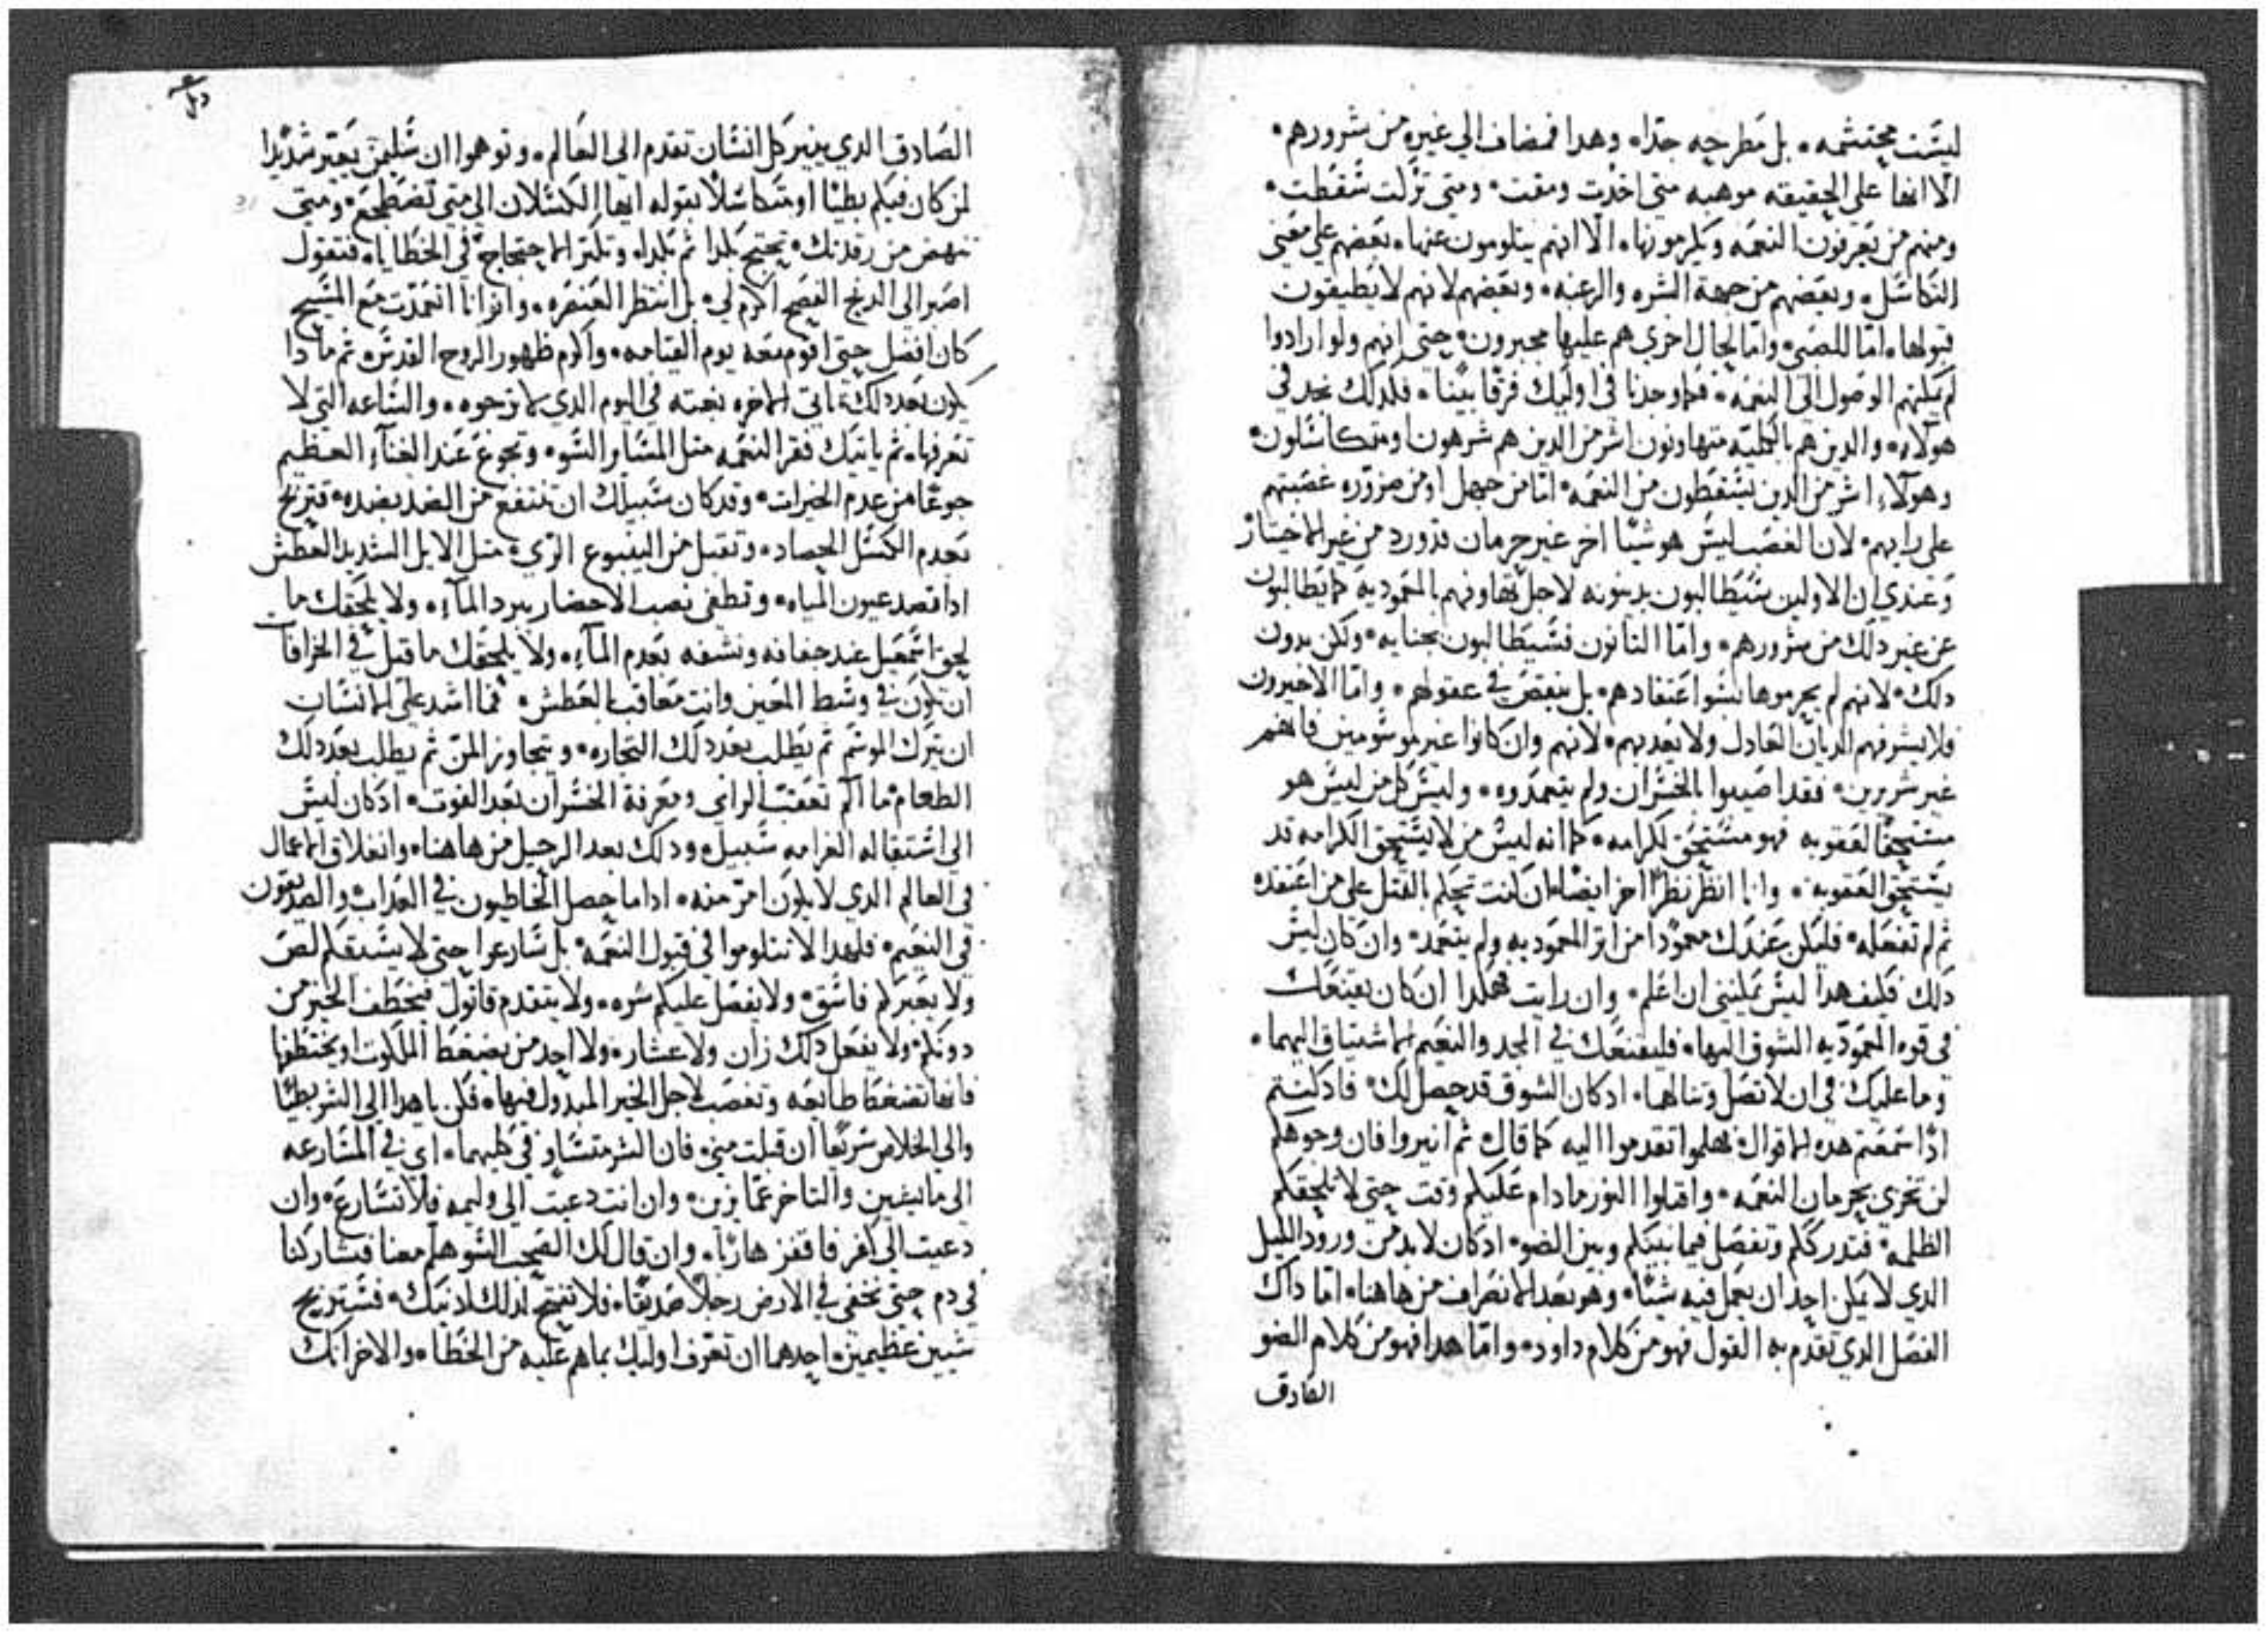 ليست محتشمه بل مطرحه جدا وهدا فمضاف الي غيره من شرورهم
الا انها علي الحقيقه موهبه متي اخدت ومقت ومتي تزلت سقطت
ومنهم من يعرفون النعمه ويكرمونها الا انهم يتلومون عنها بعضهم علي معني
التكاسل وبعضهم من جهة الشره والرغبه وبعضهم لانهم لا يطيقون
قبولها اما للصبي واما لحال اخري هم عليها مجبرون حتي انهم ولو ارادوا
لم يمكنهم الوصول الي النعمه فكما وجدنا في اوليك فرقا بينا فكدلك نجد في
هولاء والدين هم بالكليه متهاونون اشر من الدين هم شرهون او متكاسلون
وهولاء اشر من الدين يسقطون من النعمه اما من جهل او من ضروره غصبتهم
علي رايهم لان الغصب ليس هو شيا اخر غير حرمان قد ورد من غير الاختيار
وعندي ان الاولين سيطالبون بدينونه لاجل تهاونهم بالمعموديه كما يطالبون
عن غير دلك من شرورهم واما التانون فسيطالبون بجنايه ولكن بدون
دلك لانهم لم يحرموها لسو اعتقادهم بل بنقص في عقولهم واما الاخيرون
فلا يشرفهم الديان العادل ولا يعدبهم لانهم وان كانوا غير موسومين فانهم
غير شررين فقد اصيبوا بالخسران ولم يتعمدوه وليس كل من ليس هو
مستحقا لعقوبه فهو مستحق لكرامه كما انه ليس من لا يستحق الكرامه قد
يستحق العقوبه وانا انظر نظرا اخر ايضا ان كنت تحكم بالقتل علي من اعتقده
ثم لم تفعله فليكن عندك معمودا من اثر المعموديه ولم يتعمد وان كان ليس
دلك فكيف هدا ليس يمكنني ان اعلم وان رايت فهكدا ان كان يقنعك
في قوه المعموديه الشوق اليها فليقنعك في المجد والنعيم الاشتياق اليهما
وما عليك في ان لا تصل وتنالهما اد كان الشوق قد حصل لك فاد كنتم
ادا سمعتم هده الاقوال فهلموا تقدموا اليه كما قال ثم انيروا فان وجوهكم
لن تخزي بحرمان النعمه واقبلوا النور ما دام عليكم وقت حتي لا تلحقكم
الظلمه فتدرككم وتفصل فيما بينكم وبين الضو اد كان لا بد من ورود الليل
الدي لا يمكن احد ان يعمل فيه شيا وهو بعد الانصراف من هاهنا اما داك
الفصل الدي تقدم به القول فهو من كلام داود واما هدا فهو من كلام الضو
الصادق
الصادق الدي ينير كل انسان تقدم الي العالم وتوهموا ان سليمن يعير شديدا
لمن كان فيكم بطيا او متكاسلا بقوله ايها الكسلان الي متي تضطجع ومتي
تنهض من رقدتك تحتج بكدا ثم بكدا وتكتر الاحتجاج في الخطايا فتقول
اصبر الي الدنح الفصح اكرم لي بل انتظر العنصره وانوانا انعمدت مع المسيح
كان افضل حتي اقوم معه يوم القيامه واكرم ظهور الروح القدس ثم مادا
يكون بعد دلك تاتي الاخره بغته في اليوم الدي لا ترجوه والساعه التي لا
تعرفها ثم ياتيك فقر النعمه متل المسافر السو وتجوع عند الغناء العظيم
جوعا من عدم الخيرات وقد كان سبيلك ان تنتفع من الضد بضده فتربح
بعدم الكسل الحصاد وتقبل من الينبوع الري متل الايل الشديد العطش
ادا قصد عيون المياه وتطفي نصب الاحضار ببرد الماء ولا يلحقك ما
لحق اسمعيل عند جفافه ونشفه بعدم الماء ولا يلحقك ما قيل في الخرافات
ان تكون في وسط المعين وانت معاقب بالعطش فما اشد علي الانسان
ان يترك الموسم ثم يطلب بعد دلك التجاره ويتجاوز المن ثم يطلب بعد دلك
الطعام ما الم تعقب الراي ومعرفة الخسران بعد الفوت اد كان ليس
الي استقاله الغرامه سبيل ودلك بعد الرحيل من هاهنا وانغلاق الاعمال
في العالم الدي لا يكون امر منه اداما حصل الخاطيون في العداب والصديقون
في النعيم فلهدا لا تتلوموا في قبول النعمه بل سارعوا حتي لا يسبقكم لص
ولا يعبركم فاسق ولا يفضل عليكم شره ولا يتقدم قاتول فيخطف الخير من
دونكم ولا يفعل دلك زان ولا عشار ولا احد من يضغط الملكوت او يختطفها
فانها تضغط طايعه وتغصب لاجل الخير المبدول فيها فكن يا هدا الي الشر بطيا
والي الخلاص سريعا ان قبلت مني فان الشر متساو في كليهما اي في المسارعه
الي ما يشين والتاخر عما يزين وان انت دعيت الي وليمه فلا تسارع وان
دعيت الي كفر فاقفز هاربا وان قال لك الصحب السو هلم معنا فتشاركنا
في دم حتي نخفي في الارض رجلا صديقا فلا تفتح لدلك ادنيك فستربح
شيين عظيمين احدهما ان تعرف اوليك بما هم عليه من الخطا والاخر انك